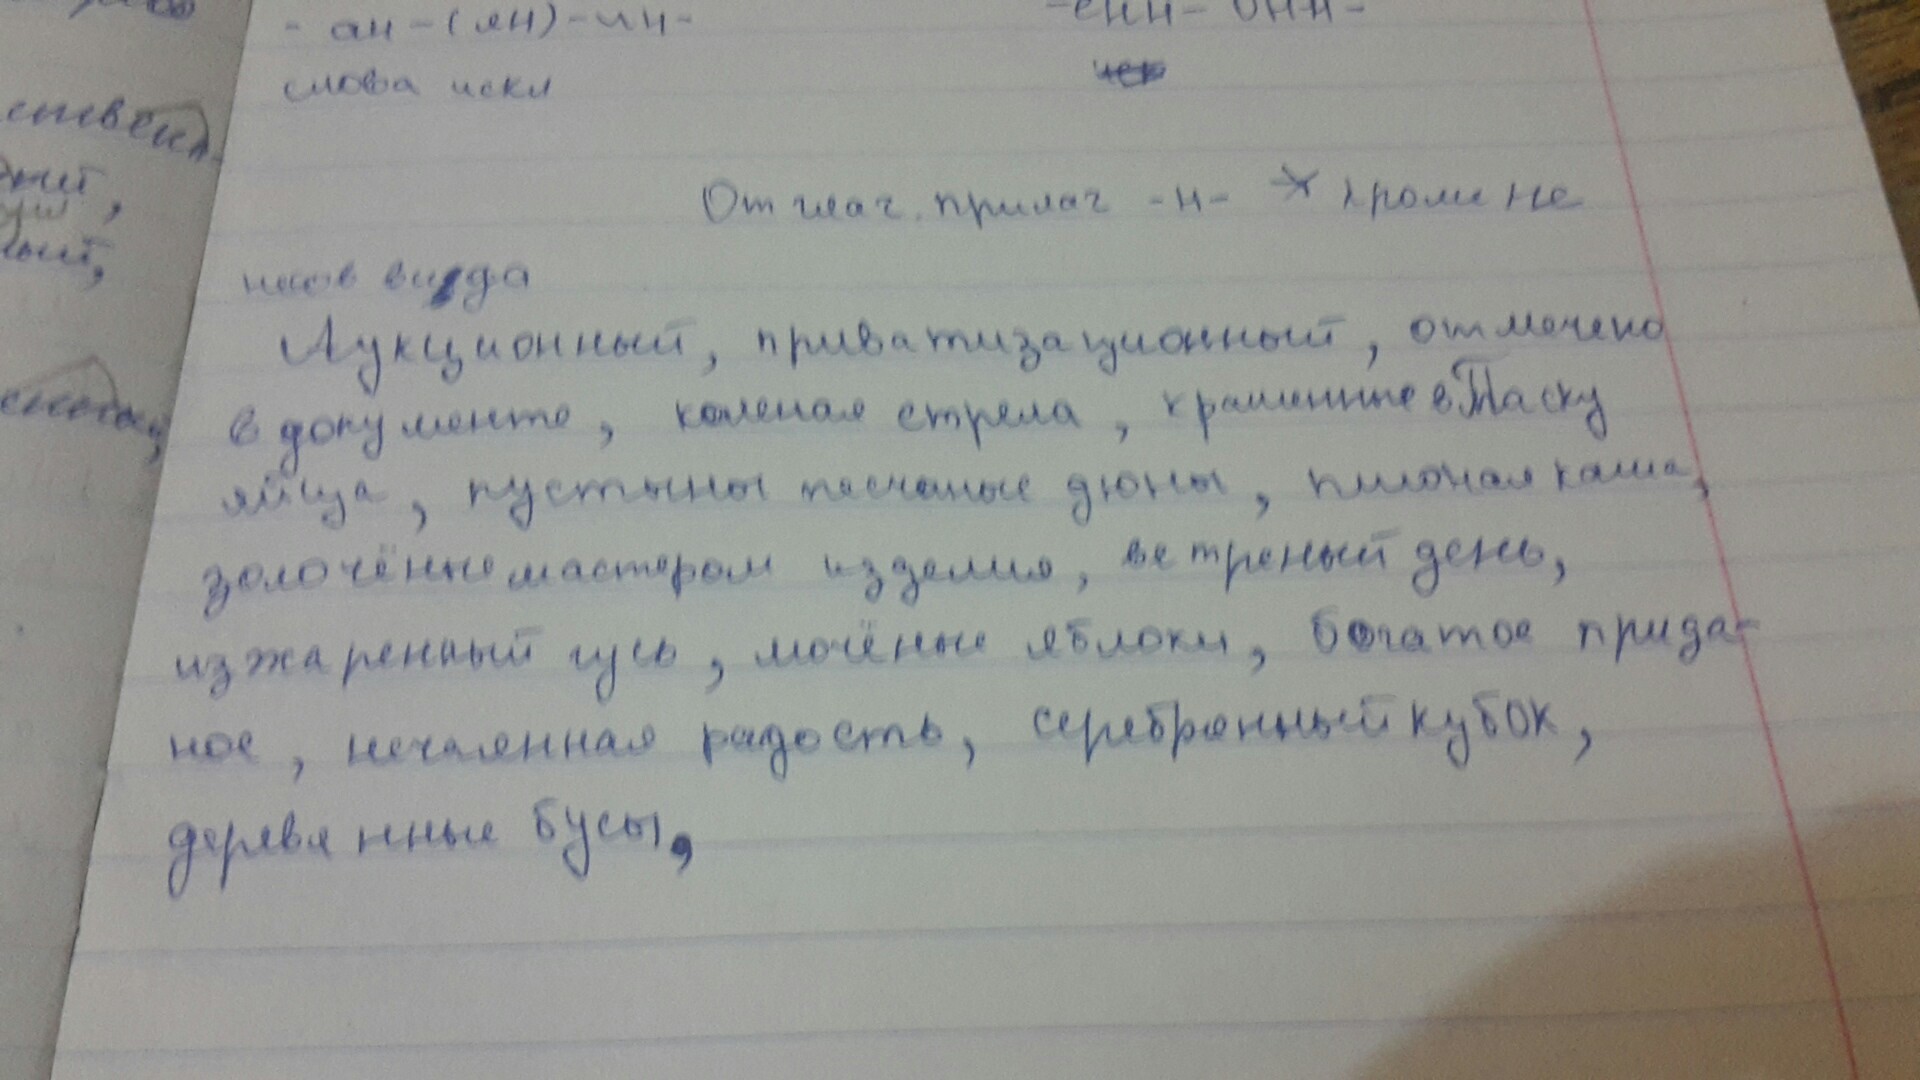 - ан -(ян) -ин-
-енн- онн-
слова искл
Отглаг. прилаг -н- кроме не
несов вида
Аукционный, приватизационный, отмечено
в документе, каленая стрела, крашенные в Пасху
яйца, пустыны песчаные дюны, пшоная каша,
золочённые мастером изделия, ветреный день,
изжаренный гусь, мочёные яблоки, богатое прида-
ное, нечаянная радость, серебрянный кубок,
деревянные бусы,